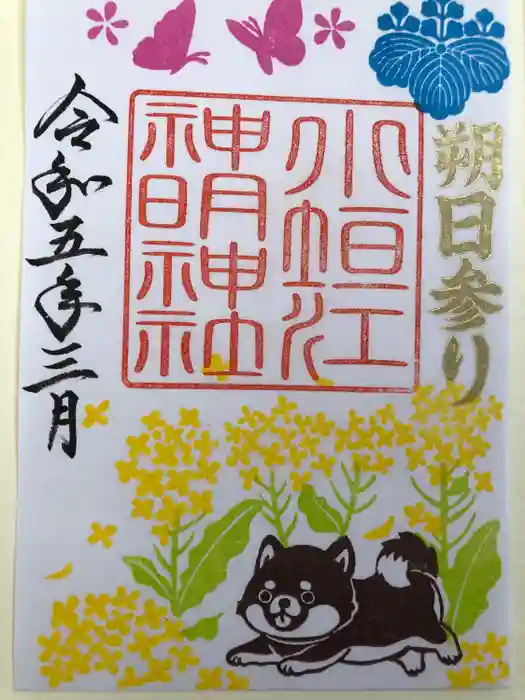 朔日参り
小垣江
神明神社
令和五年三月